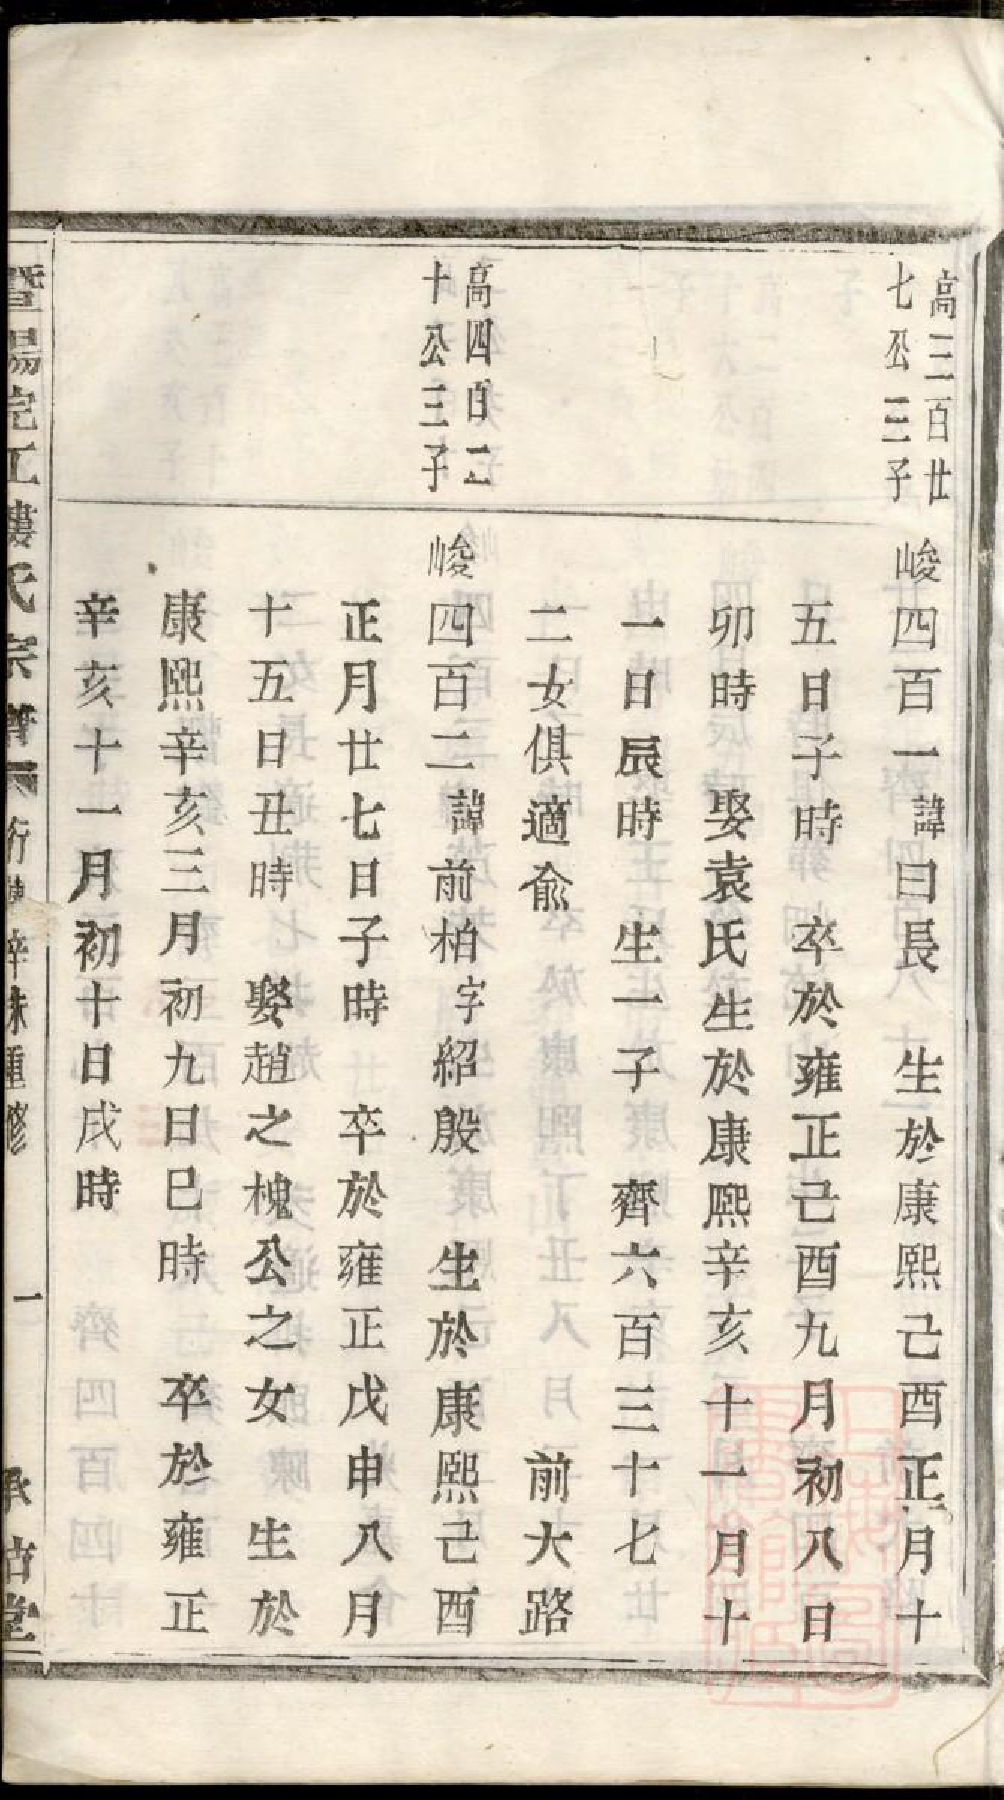 高三百廿
七公三子
峻四百一諱曰長　生於康熙己酉正月十
五日子時　卒於雍正己酉九月初八日
卯時　娶袁氏生於康熙辛亥十一月十
一日辰時　生一子　齊六百三十七
二女俱適俞　前大路
高四百二
十公三子
峻四百二諱前柏字紹殷　生於康熙己酉
正月廿七日子時　卒於雍正戊申八月
十五日丑時　娶趙之槐公之女　生於
康熙辛亥三月初九日巳時　卒於雍正
辛亥十一月初十日戌時
暨陽浣江樓氏宗譜　　重修　一　承祜堂